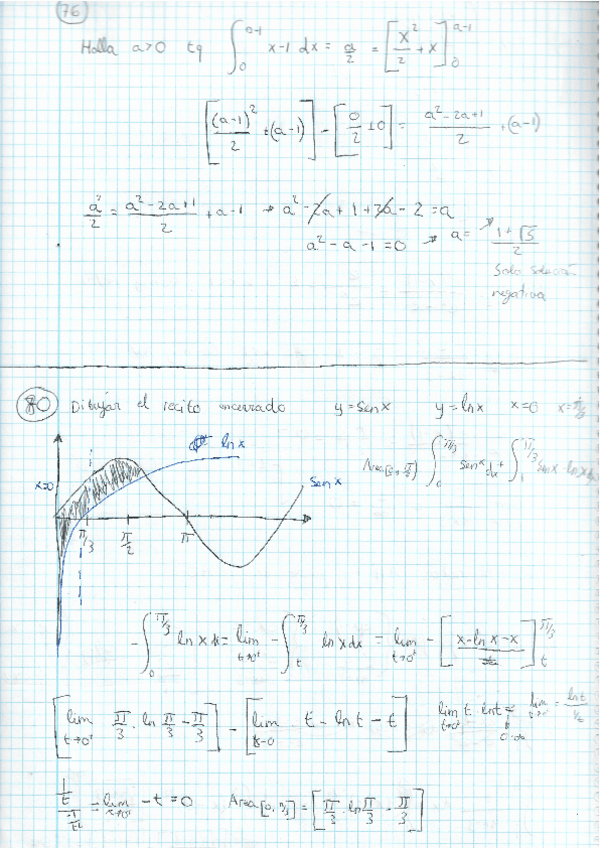 76
Halla a>0 tq ∫₀^(a-1) x-1 dx = a/2 = [x²/2 + x]₀^(a-1)
[(a-1)²/2 + (a-1)] - [0/2 ± 0] = (a²-2a+1)/2 + (a-1)
a²/2 = (a²-2a+1)/2 + a-1 → a² - 2a + 1 + 2a - 2 = a
a² - a - 1 = 0 → a = (1+√5)/2
Solo solución
negativa
80 Dibujar el recito encerrado y=senx y=lnx x=0 x=π/3
lnx
x=0
senx
π/3 π/2 π
∫₀^(π/3) senx dx + ∫₁^(π/3) senx - lnx dx
-∫₀^(π/3) lnx dx = lim t→0⁺ -∫ₜ^(π/3) lnx dx = lim t→0⁺ -[x-lnx-x]ₜ^(π/3)
[lim t→0⁺ π/3 · ln π/3 - π/3] - [lim t→0 t-lnt-t] lim t→0⁺ t·lnt = lim = lnt/(1/t)
0·∞
(1/t)/(-1/t²) = lim -t=0 Area[0,π/3] = [π/3 · ln π/3 - π/3]